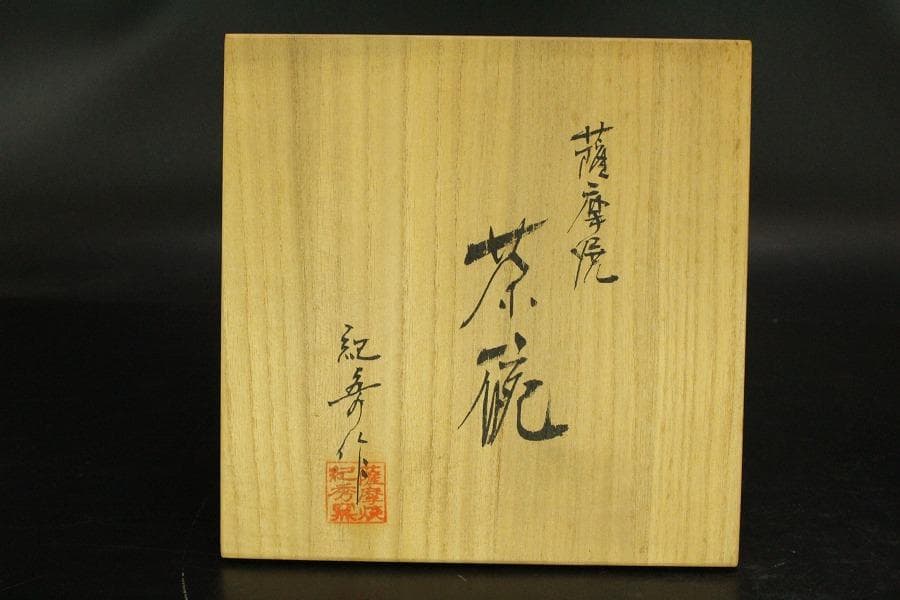 薩摩焼
茶碗
紀秀作
薩摩焼
紀秀窯